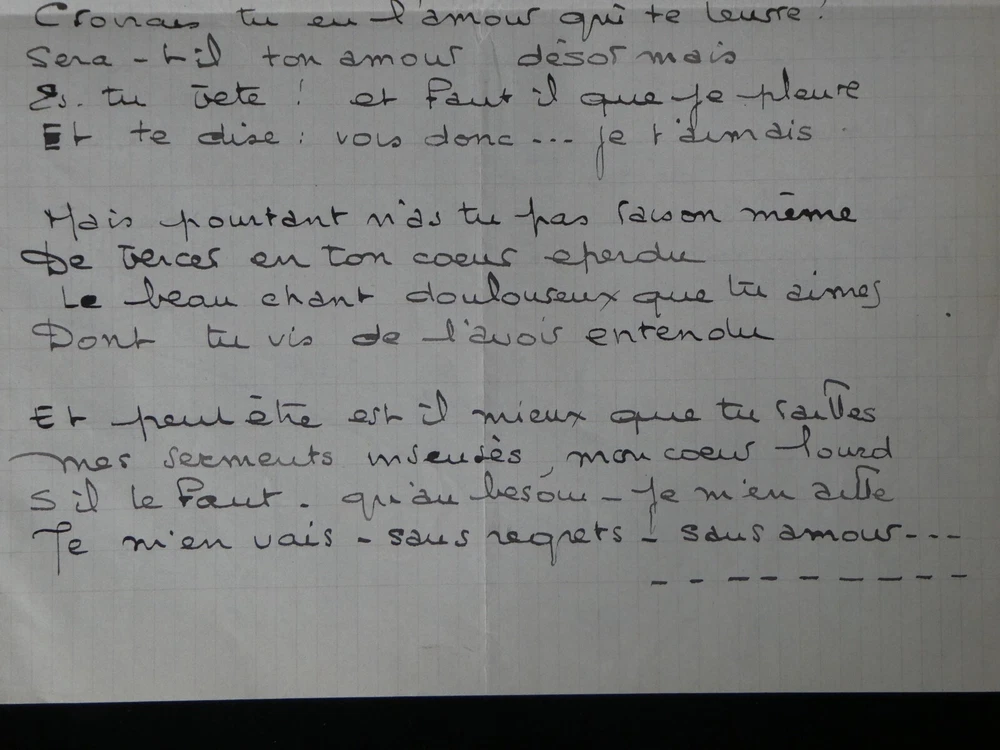 Cronais tu en l'amour qui te leurre!
Sera-t-il ton amour désormais
Es. tu bete! et faut il que je pleure
Et te dise: vois donc... je t'aimais.
Mais pourtant n'as tu pas raison même
De bercer en ton coeur eperdu
Le beau chant douloureux que tu aimes
Dont tu vis de l'avoir entendu
Et peut être est il mieux que tu railles
mes serments insensés, mon coeur lourd
S il le faut. qu'au besoin - je m'en aille
Je m'en vais - sans regrets - sans amour---